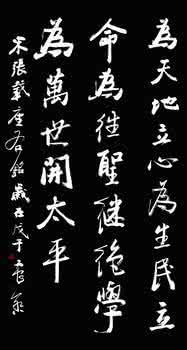 為天地立心為生民立
命為往聖继绝學
為萬世開太平
宋張載座右銘歲在戊子